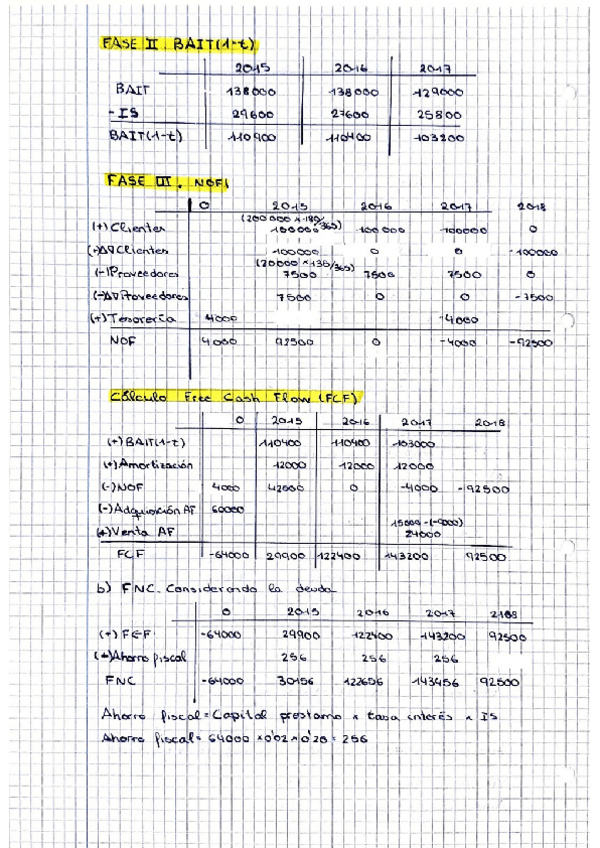 FASE II. BAIT(1-t)
2015 2016 2017
BAIT 138000 138000 129000
- IS 29600 27600 25800
BAIT(1-t) 110900 110400 103200
FASE III. NOF
0 2015 2016 2017 2018
(200000 x 180/365)
(+) Clientes 100000 100000 100000 0
(+)Δ∇Clientes 100000 0 0 -100000
(20000 x 138/365)
(-)Proveedores 7500 7500 7500 0
(-)Δ∇Proveedores 7500 0 0 -7500
(+) Tesorería 4000 -4000
NOF 4000 92500 0 -4000 -92500
Cálculo Free Cash Flow (FCF)
0 2015 2016 2017 2018
(+) BAIT(1-t) 110400 110400 103000
(+) Amortización 12000 12000 12000
(-) NOF 4000 42000 0 -4000 -92500
(-) Adquisición AF 60000
15000-(-9000)
(+) Venta AF 24000
FCF -64000 29900 122400 143200 92500
b) FNC. Considerando la deuda
0 2015 2016 2017 2188
(+) FCF -64000 29900 122400 143200 92500
(+) Ahorro fiscal 256 256 256
FNC -64000 30156 122656 143456 92500
Ahorro fiscal = Capital prestamo x tasa interés x IS
Ahorro fiscal = 64000 x 0'02 x 0'20 = 256